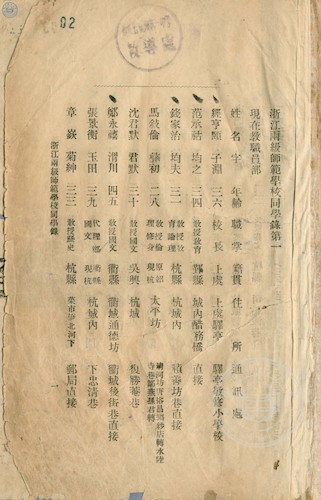 浙江兩級師範學校同學錄第一
現在教職員部
姓名 字 年齡 職掌 籍貫 住所 通訊處
經亨頤 子淵 三六 校長 上虞 上虞驛亭 驛亭敬修小學校
范承祜 均之 三四 教授教育 鄞縣 城內醋務橋 直接
錢家治 均夫 三一 教授教育論理 杭縣 積善坊巷 直接
馬敍倫 彝初 二八 教授倫理修身 杭縣 太平坊
沈君默 君默 三十 教授國文 吳興 杭城
鄭永禧 渭川 四五 教授國文 衢縣 衢城通德坊 衢城後街巷直接
張景衡 玉田 三九 國文 杭城內 下忠清巷
章嶔 菊紳 三三 教授歷史 杭縣 菜市橋北河下 郵局直接
浙江兩級師範學校同學錄
一
02